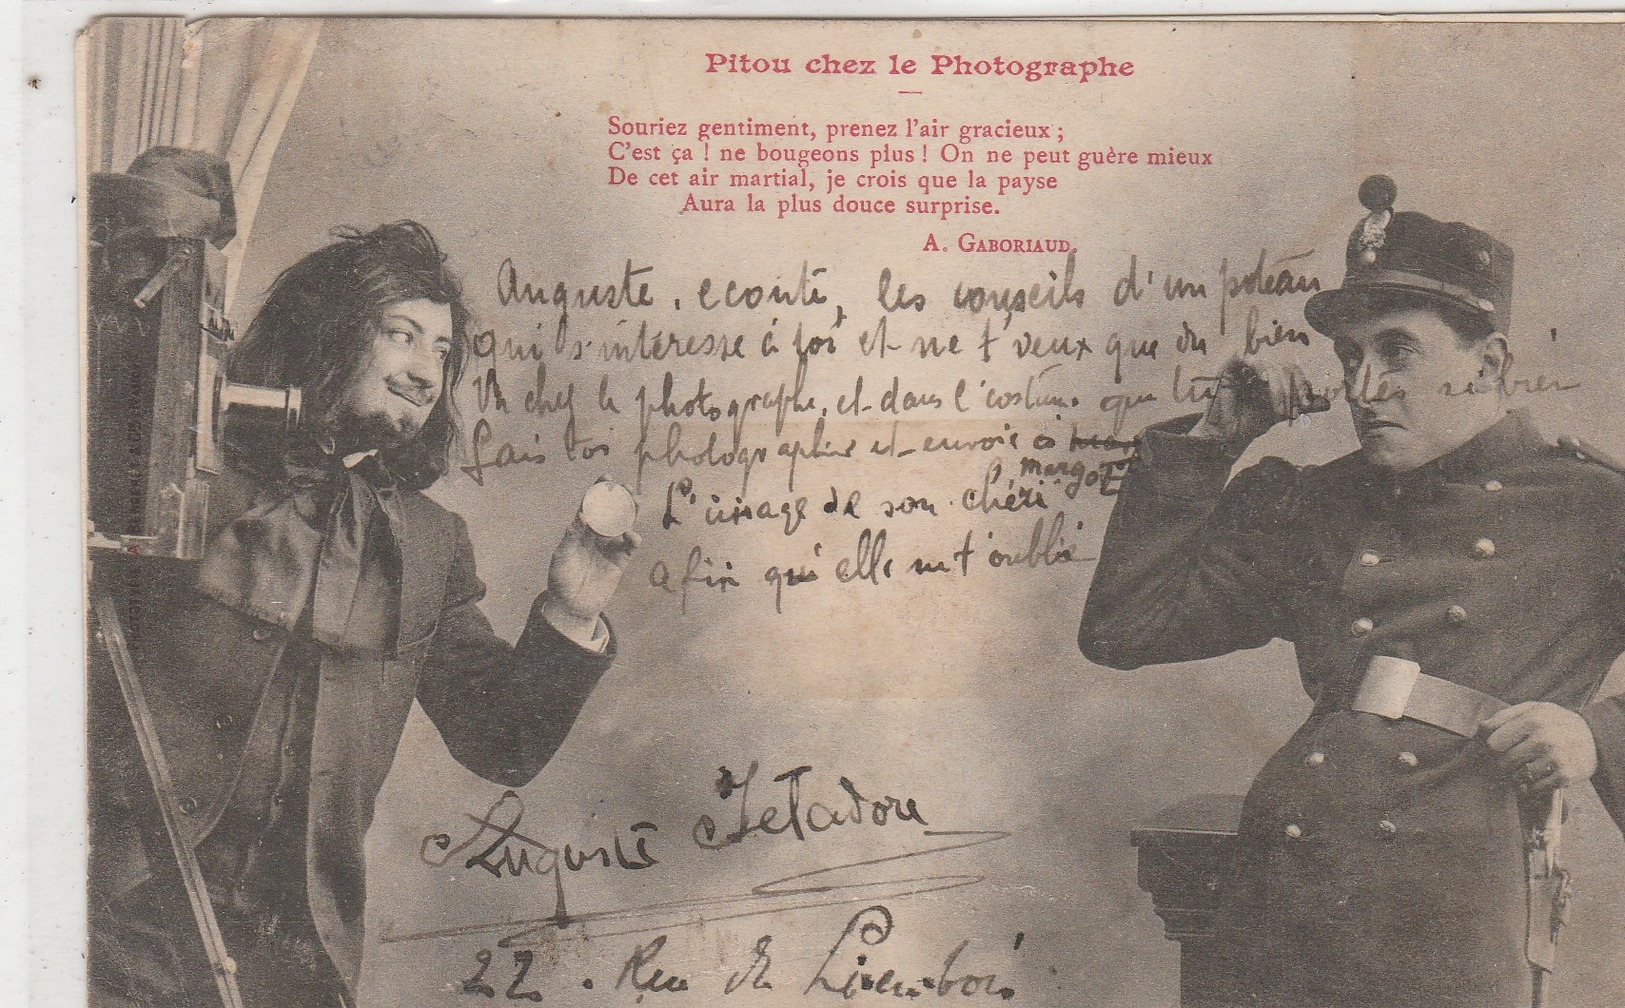 Pitou chez le Photographe
Souriez gentiment, prenez l'air gracieux ;
C'est ça ! ne bougeons plus ! On ne peut guère mieux
De cet air martial, je crois que la payse
Aura la plus douce surprise.
A. GABORIAUD.
Auguste, ecoute, les conseils d'un poteau
qui s'intéresse à toi et ne t'veux que du bien
Va chez le photographe, et dans l'costume que tu portes si bien
fais toi photographier et envoie à
margot
L'image de son chéri
afin qu'elle n't'oublie
Auguste Jetadore
22. Rue de